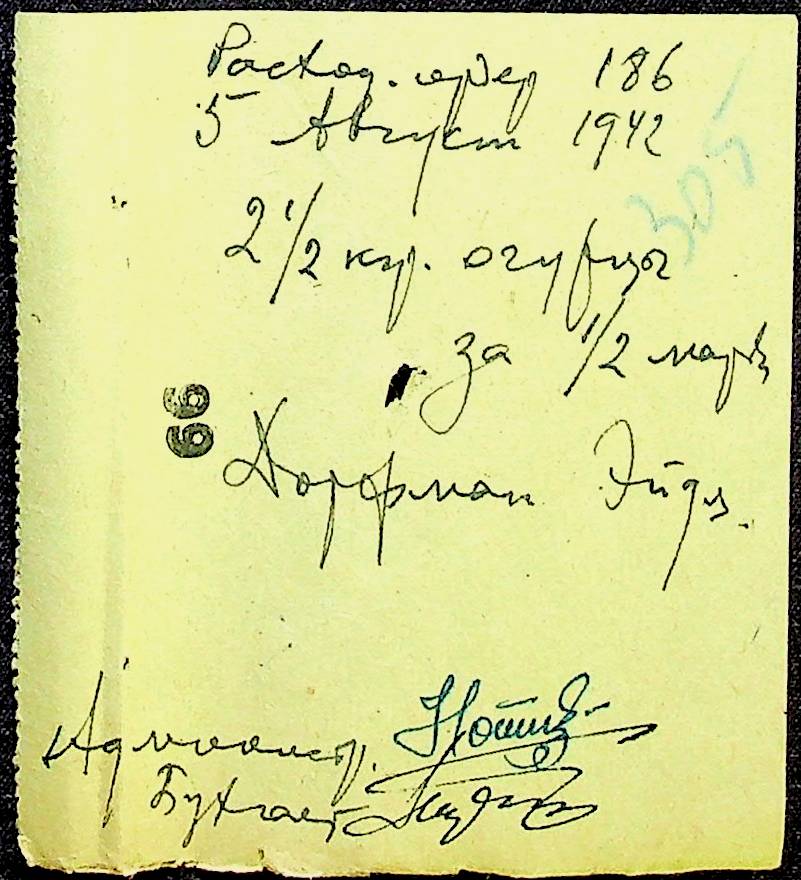 Расход. ордер 186
5 Август 1942
305
2 1/2 кгр. огурцы
за 1/2 марк
66
Дорфман Эйдл.
Администр.
Бухгалт